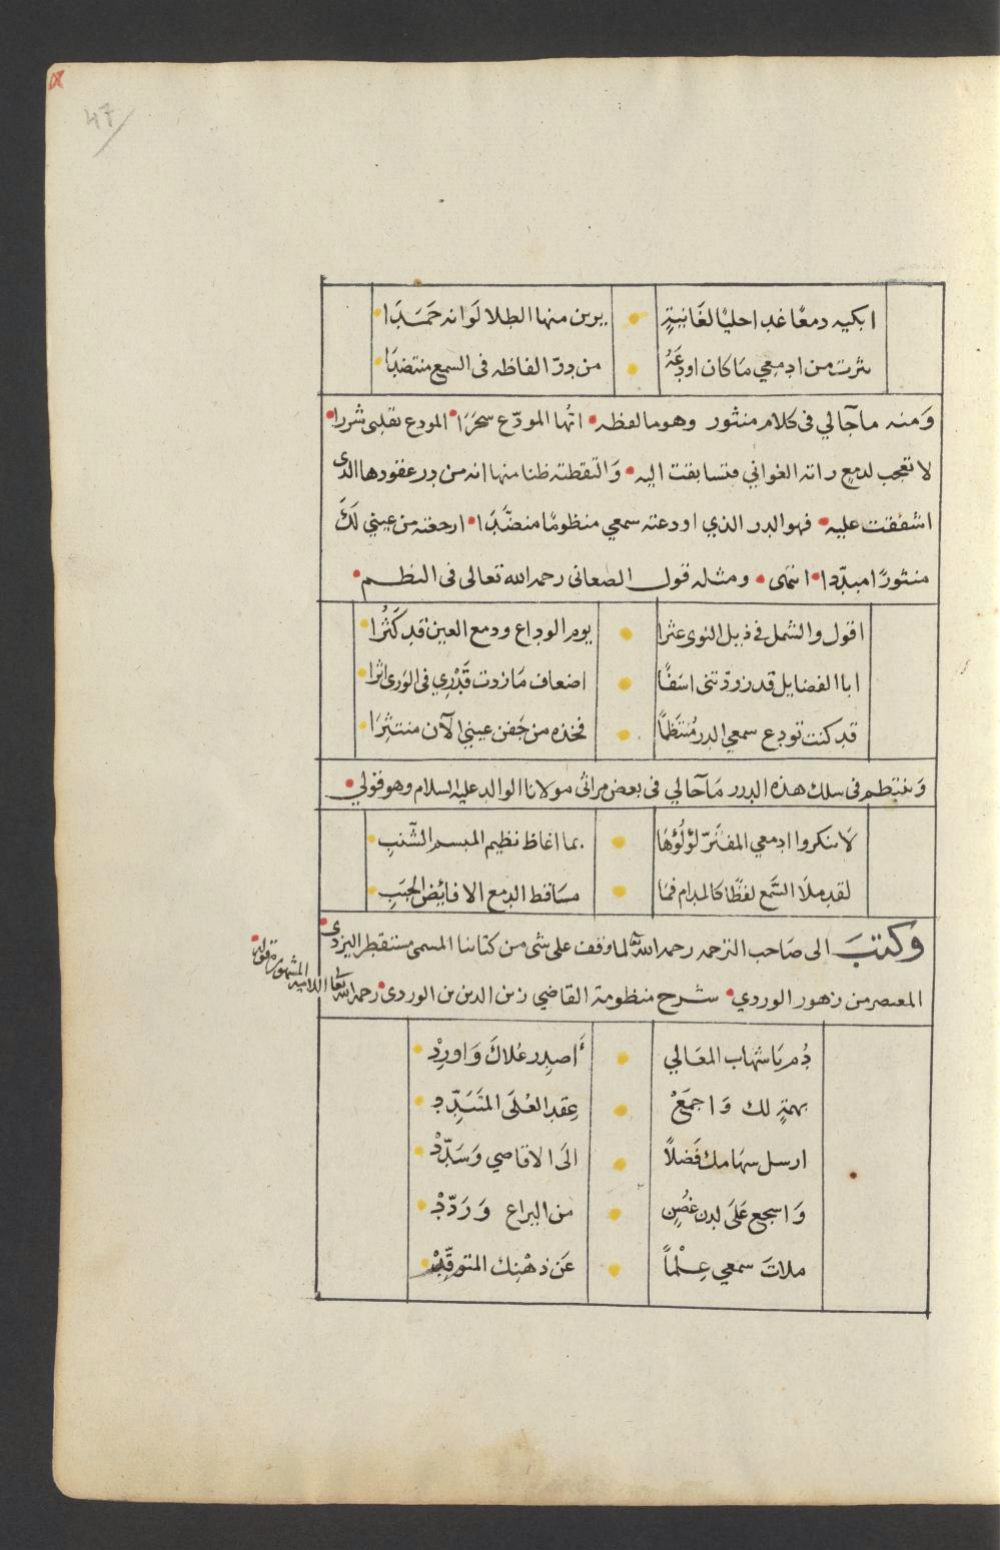 47
ابكيه دمعا غدا حليا لغانيةٍ • يرين منها الطلا لوانه جَمَدَا •
نثرت من ادمعي مَا كان اودعَهُ • من درّ الفاظه فى السمع منتضدَا •
وَمنه ماجآلي فى كلام منثور وهو ما لفظه • ايّها المودّع سَحَرَا • المودع بقلبى شررا •
لا تعجب لدمع راته الغواني فتسابقت اليه • وَالتقطته ظنا منها انه من در عقودها الذى
اشفقت عليه • فهو الدر الذي اودعته سمعي منظومًا منضّدَا • ارجعته من عيني لَكَ
منثورًا مبدّدا • انتهى • ومثله قول الصعانى رحمه الله تعالى فى النظم •
اقول والشمل فى ذيل النوى عثرا • يوم الوداع ودمع العين قد كَثُرا •
ابا الفضايل قد زودتنى اسَفًا • اضعاف مَا زدت قَدْرِي فى الورى اثرا •
قد كنت تودع سمعي الدر مُنتَظمًا • فخذه من جَفن عيني الآن منتثِرَا •
وَينتظم فى سلك هذه الدرر مَآجالي فى بعض مراثى مولانا الوالد عليه السلام وهو قولي •
لَا تنكروا ادمعي المفتَرّ لؤلُؤهَا • بما اغاظ نظيم المبسم الشَّنبِ •
لقد ملَا السَّمع لفظًا كالمدام فمَا • مسَاقط الدمع الا فايُض الحبَبِ •
وكتبَ الى صَاحب الترجمه رحمه الله لما وقف على شى من كتابنا المسمى مستقطر اليزدى •
المعتصر من زهور الوردي • شرح منظومة القاضي زين الدين بن الوردى • رحمه الله تعا اللاميه المشهورة
دُم يَا شهاب المعَالي • أَصدِر عُلاكَ وَاورِدْ •
بهمّةٍ لك وَاجمَعْ • عِقد العُلَى المتَبَدِّد •
ارسل سهَامك فَضلاً • الَى الاقاصي وَسَدِّدْ •
وَاسجع عَلَى لدن غصُنٍ • من اليراع وَرَدّدْ •
ملاتَ سمعي عِلْماً • عَن ذهْنِك المتوقِّدْ •